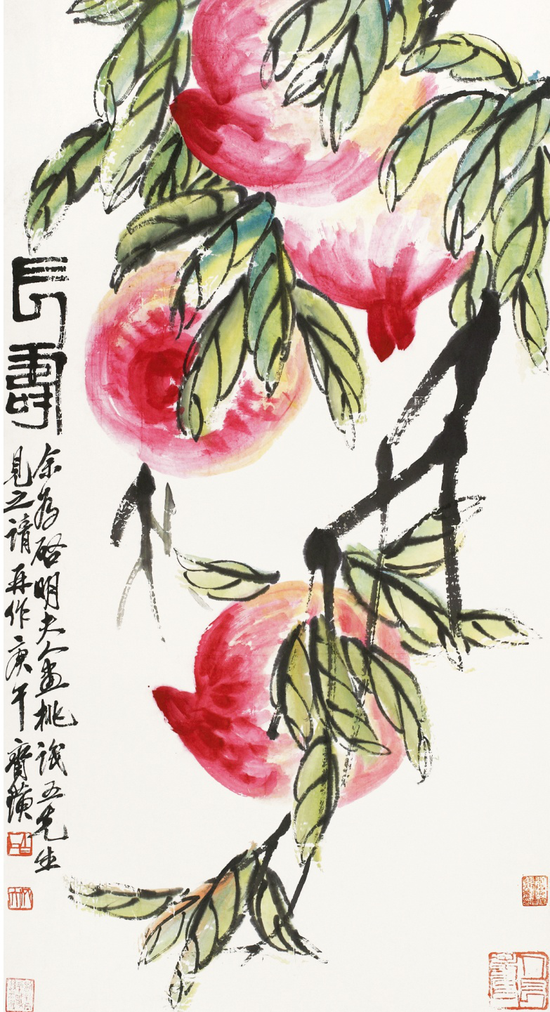 長壽
余為啓明夫人畫桃諓五先生
見之請再作庚午齊璜